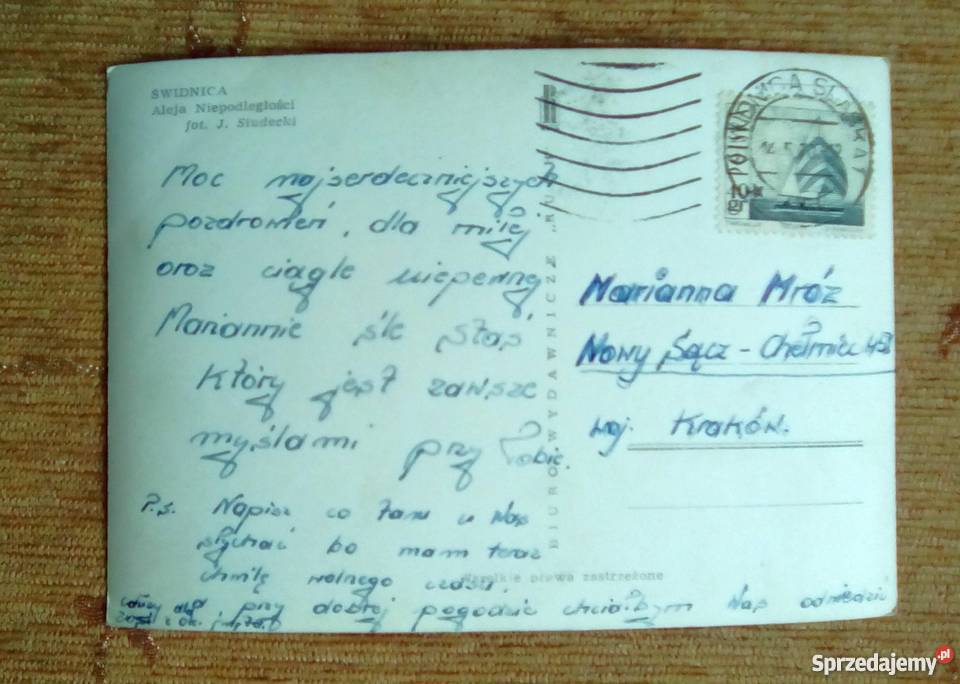 ŚWIDNICA
Aleja Niepodległości
fot. J. Siudecki
Moc najserdeczniejszych
pozdrowień, dla miłej
oraz ciągle niepewnej
Mariannie śle Staś
który jest zawsze
myślami przy Tobie.
P.s. Napisz co tam u Was
słychać bo mam teraz
chwilę wolnego czasu,
przy dobrej pogodzie chciałbym Was odwiedzić
BIURO WYDAWNICZE „RUCH"
POLSKA
Marianna Mróz
Nowy Sącz - Chełmiec
woj. Kraków.
prawa zastrzeżone
Sprzedajemy.pl